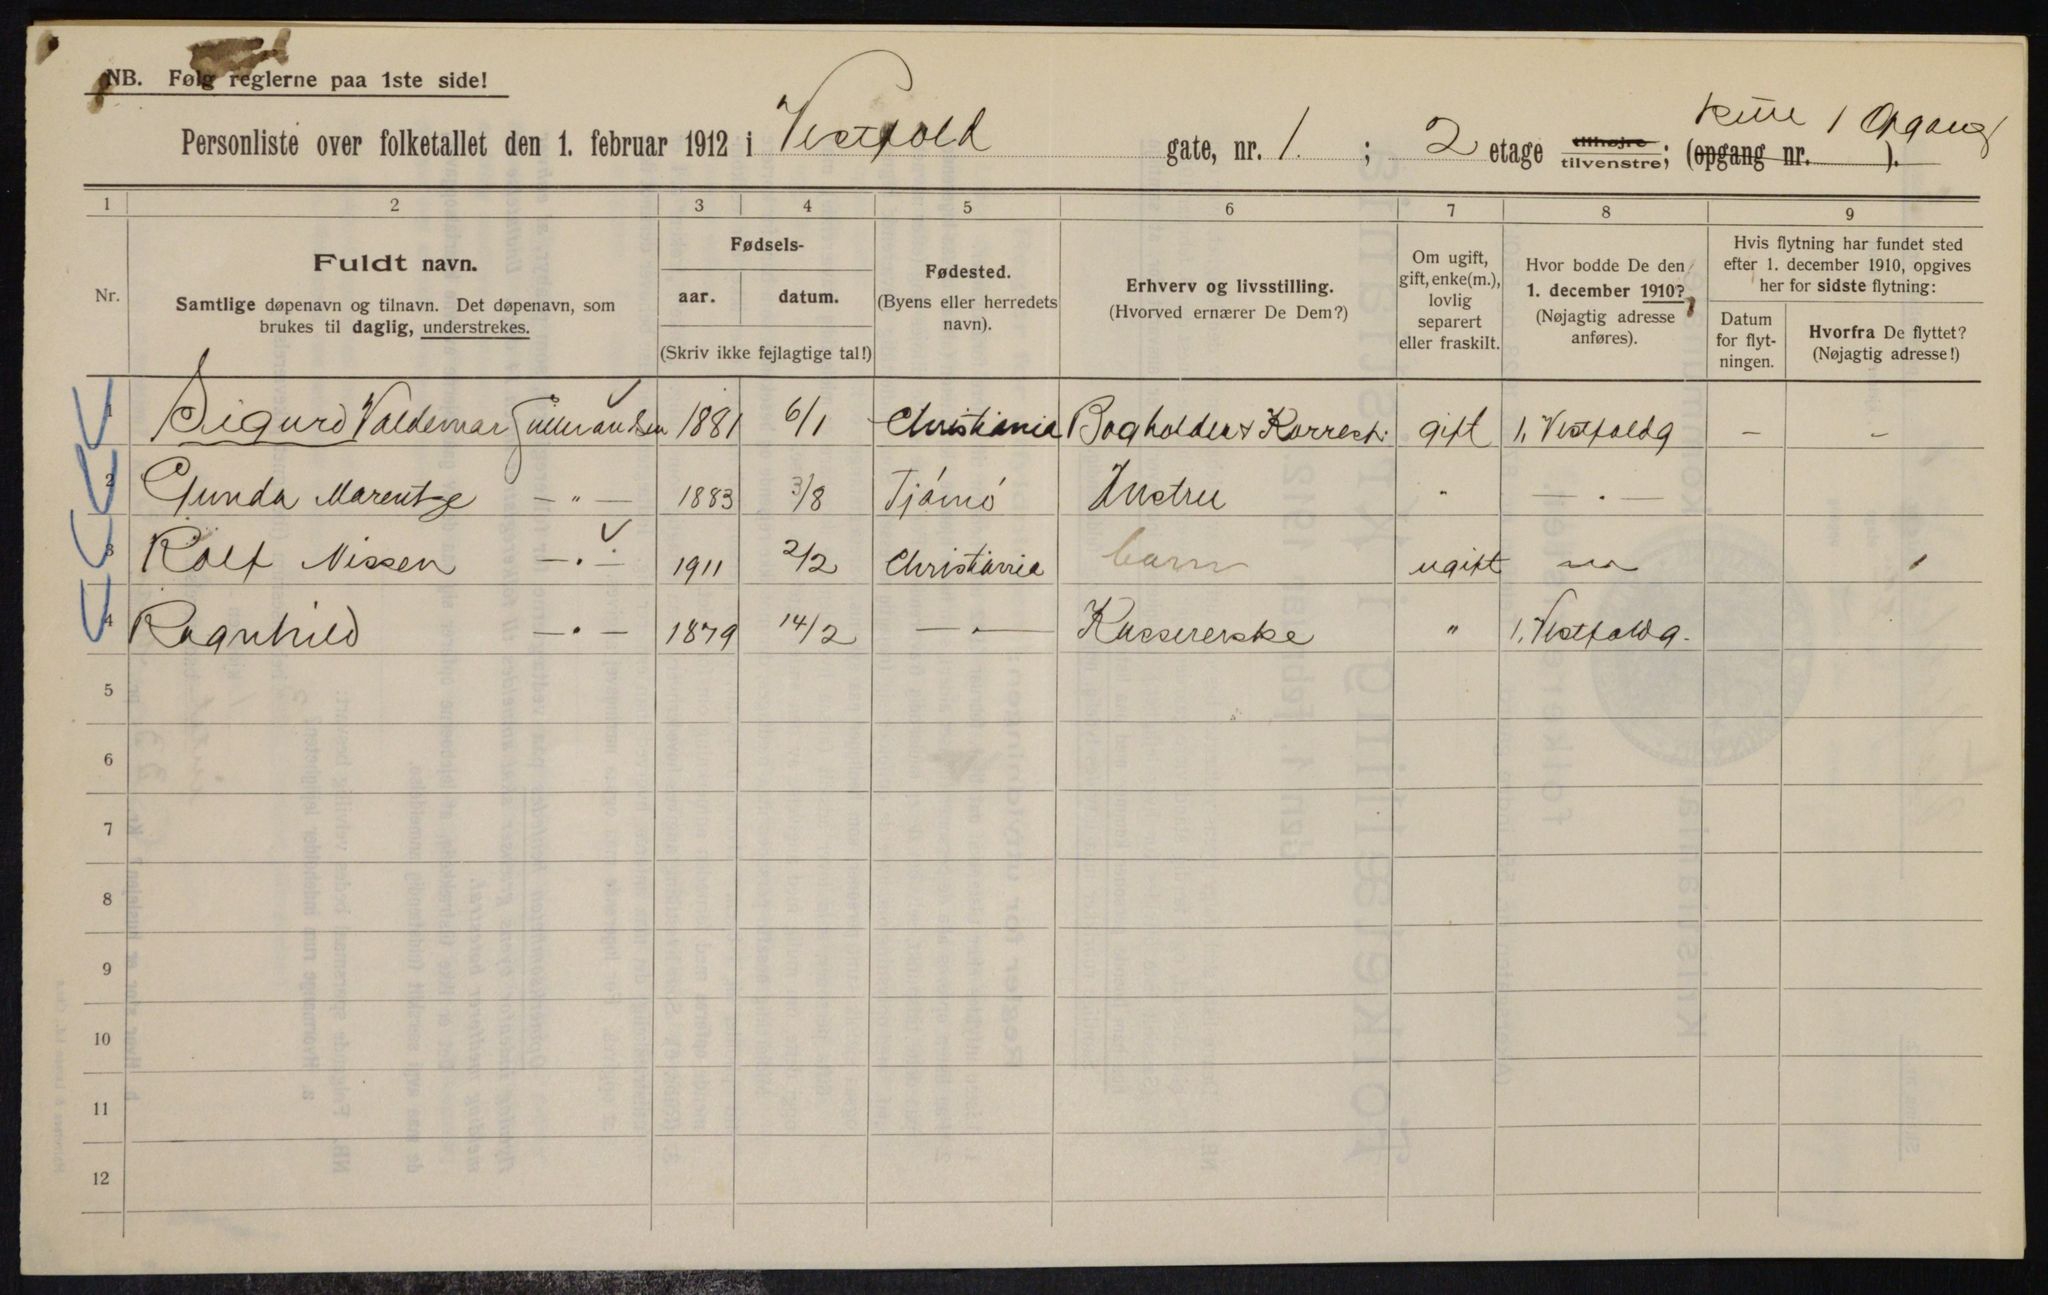 NB. Følg reglerne paa 1ste side!
Personliste over folketallet den 1. februar 1912 i Vestfold gate, nr. 1. ; 2 etage tilhøjre tilvenstre; (opgang nr. ). kun 1 Opgang
1 2 3 4 5 6 7 8 9
Nr.
Fuldt navn.
Samtlige døpenavn og tilnavn. Det døpenavn, som
brukes til daglig, understrekes.
Fødsels-
aar. datum.
(Skriv ikke fejlagtige tal!)
Fødested.
(Byens eller herredets
navn).
Erhverv og livsstilling.
(Hvorved ernærer De Dem?)
Om ugift,
gift, enke(m.),
lovlig
separert
eller fraskilt.
Hvor bodde De den
1. december 1910?
(Nøjagtig adresse
anføres).
Hvis flytning har fundet sted
efter 1. december 1910, opgives
her for sidste flytning:
Datum
for flyt-
ningen.
Hvorfra De flyttet?
(Nøjagtig adresse!)
1 Sigurd Valdemar 1881 6/1 Christiania Bogholder & Korresp. gift 1, Vestfoldg - -
2 Gunda Marentze — " — 1883 3/8 Tjømø Hustru " — " —
3 Rolf Nissen — " — 1911 2/2 Christiania barn ugift
4 Ragnhild — " — 1879 14/2 — " — Kassererske " 1, Vestfoldg.
5
6
7
8
9
10
11
12